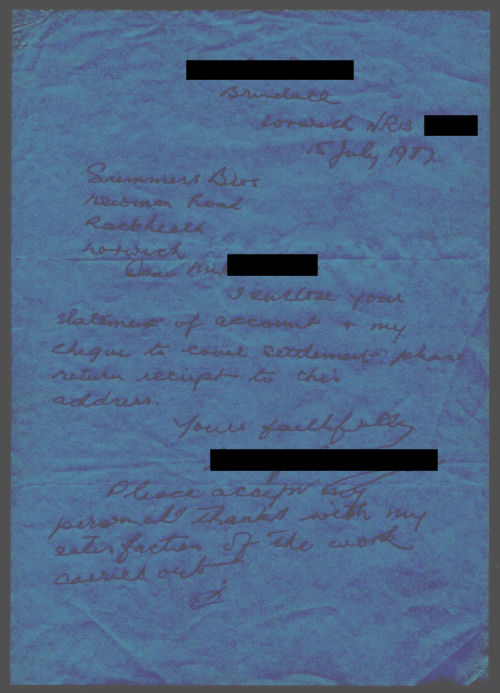 Brundall
Norwich NR13
15 July 1987.
Summers Bros
Newman Road
Rackheath
Norwich
Dear Mr
I enclose your
statement of account & my
cheque to cover settlement. please
return receipt to this
address.
Yours faithfully
Please accept my
personal thanks with my
satisfaction of the work
carried out